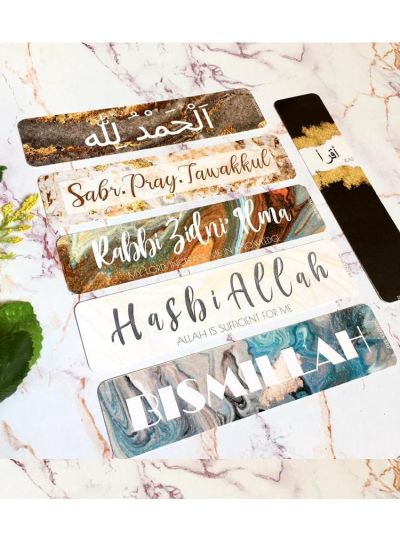 اَلْحَمْدُ لِلّٰه
Sabr. Pray. Tawakkul
Rabbi Zidni 'Ilma
MY LORD INCREASE ME IN KNOWLEDGE
HasbiAllah
ALLAH IS SUFFICIENT FOR ME
BISMILLAH
اقرأ